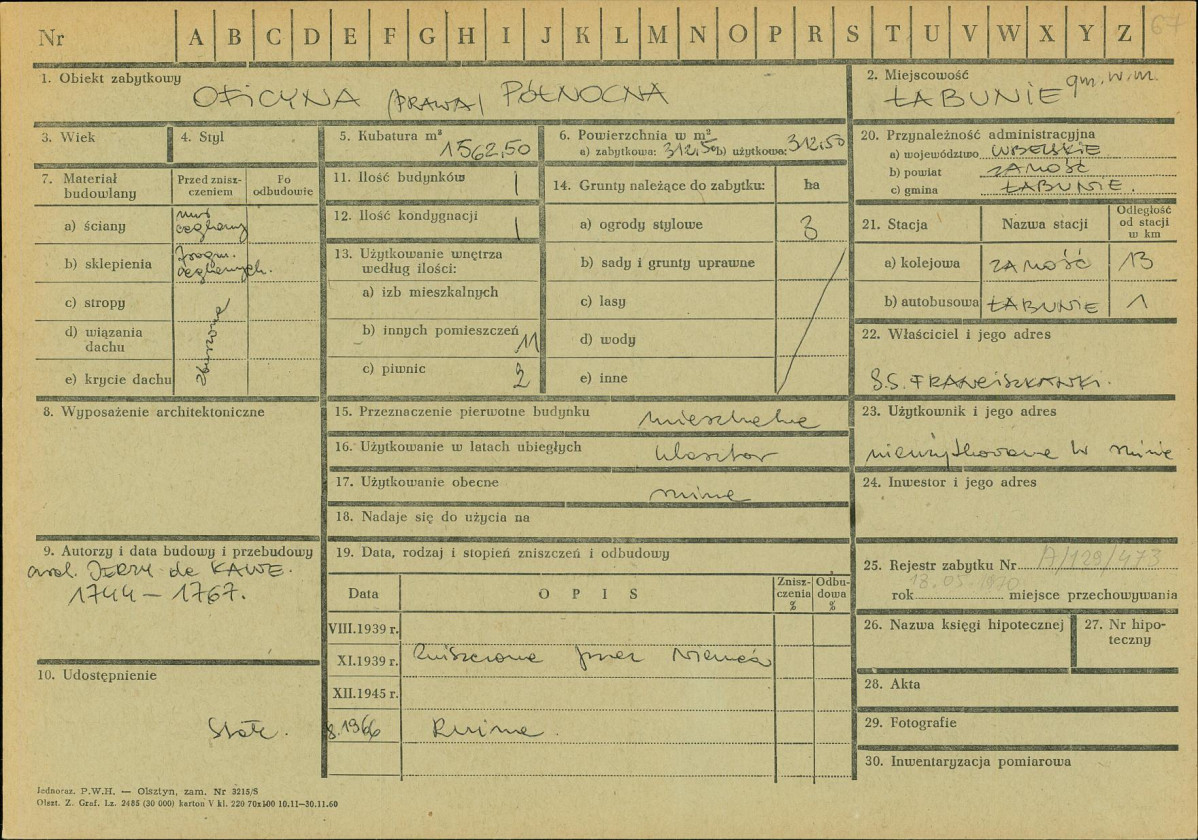 Nr A B C D E F G H I J K L M N O P R S T U V W X Y Z 67
1. Obiekt zabytkowy
OFICYNA (PRAWA) PÓŁNOCNA
2. Miejscowość
ŁABUNIE gm. w. m.
3. Wiek
4. Styl
5. Kubatura m³ 1562,50
6. Powierzchnia w m²
a) zabytkowa: 312,50 b) użytkowa: 312,50
20. Przynależność administracyjna
a) województwo LUBELSKIE
b) powiat ZAMOŚĆ
c) gmina ŁABUNIE.
7. Materiał budowlany
Przed zniszczeniem
Po odbudowie
a) ściany mur ceglany
b) sklepienia fragm. ceglanych.
c) stropy
d) wiązania dachu
e) krycie dachu
zburzone
11. Ilość budynków 1
12. Ilość kondygnacji 1
13. Użytkowanie wnętrza
według ilości:
a) izb mieszkalnych
b) innych pomieszczeń 11
c) piwnic 2
14. Grunty należące do zabytku: ha
a) ogrody stylowe 3
b) sady i grunty uprawne
c) lasy
d) wody
e) inne
21. Stacja
Nazwa stacji
Odległość od stacji w km
a) kolejowa ZAMOŚĆ 13
b) autobusowa ŁABUNIE 1
22. Właściciel i jego adres
S.S. FRANCISZKANKI.
8. Wyposażenie architektoniczne
15. Przeznaczenie pierwotne budynku mieszkalne
16. Użytkowanie w latach ubiegłych klasztor
17. Użytkowanie obecne ruina
18. Nadaje się do użycia na
23. Użytkownik i jego adres
nieużytkowane w ruinie
24. Inwestor i jego adres
9. Autorzy i data budowy i przebudowy
arch. JERZY de KAWE.
1744 – 1767.
10. Udostępnienie
Stałe.
19. Data, rodzaj i stopień zniszczeń i odbudowy
Data
O P I S
Zniszczenia %
Odbudowa %
VIII.1939 r.
XI.1939 r. Zniszczone przez Niemców
XII.1945 r.
8.1966 Ruina.
25. Rejestr zabytku Nr A/129/473
rok 18.05.1970 miejsce przechowywania
26. Nazwa księgi hipotecznej
27. Nr hipoteczny
28. Akta
29. Fotografie
30. Inwentaryzacja pomiarowa
Jednoraz. P.W.H. — Olsztyn, zam. Nr 3215/S
Olszt. Z. Graf. Lz. 2485 (30 000) karton V kl. 220 70x100 10.11—30.11.60